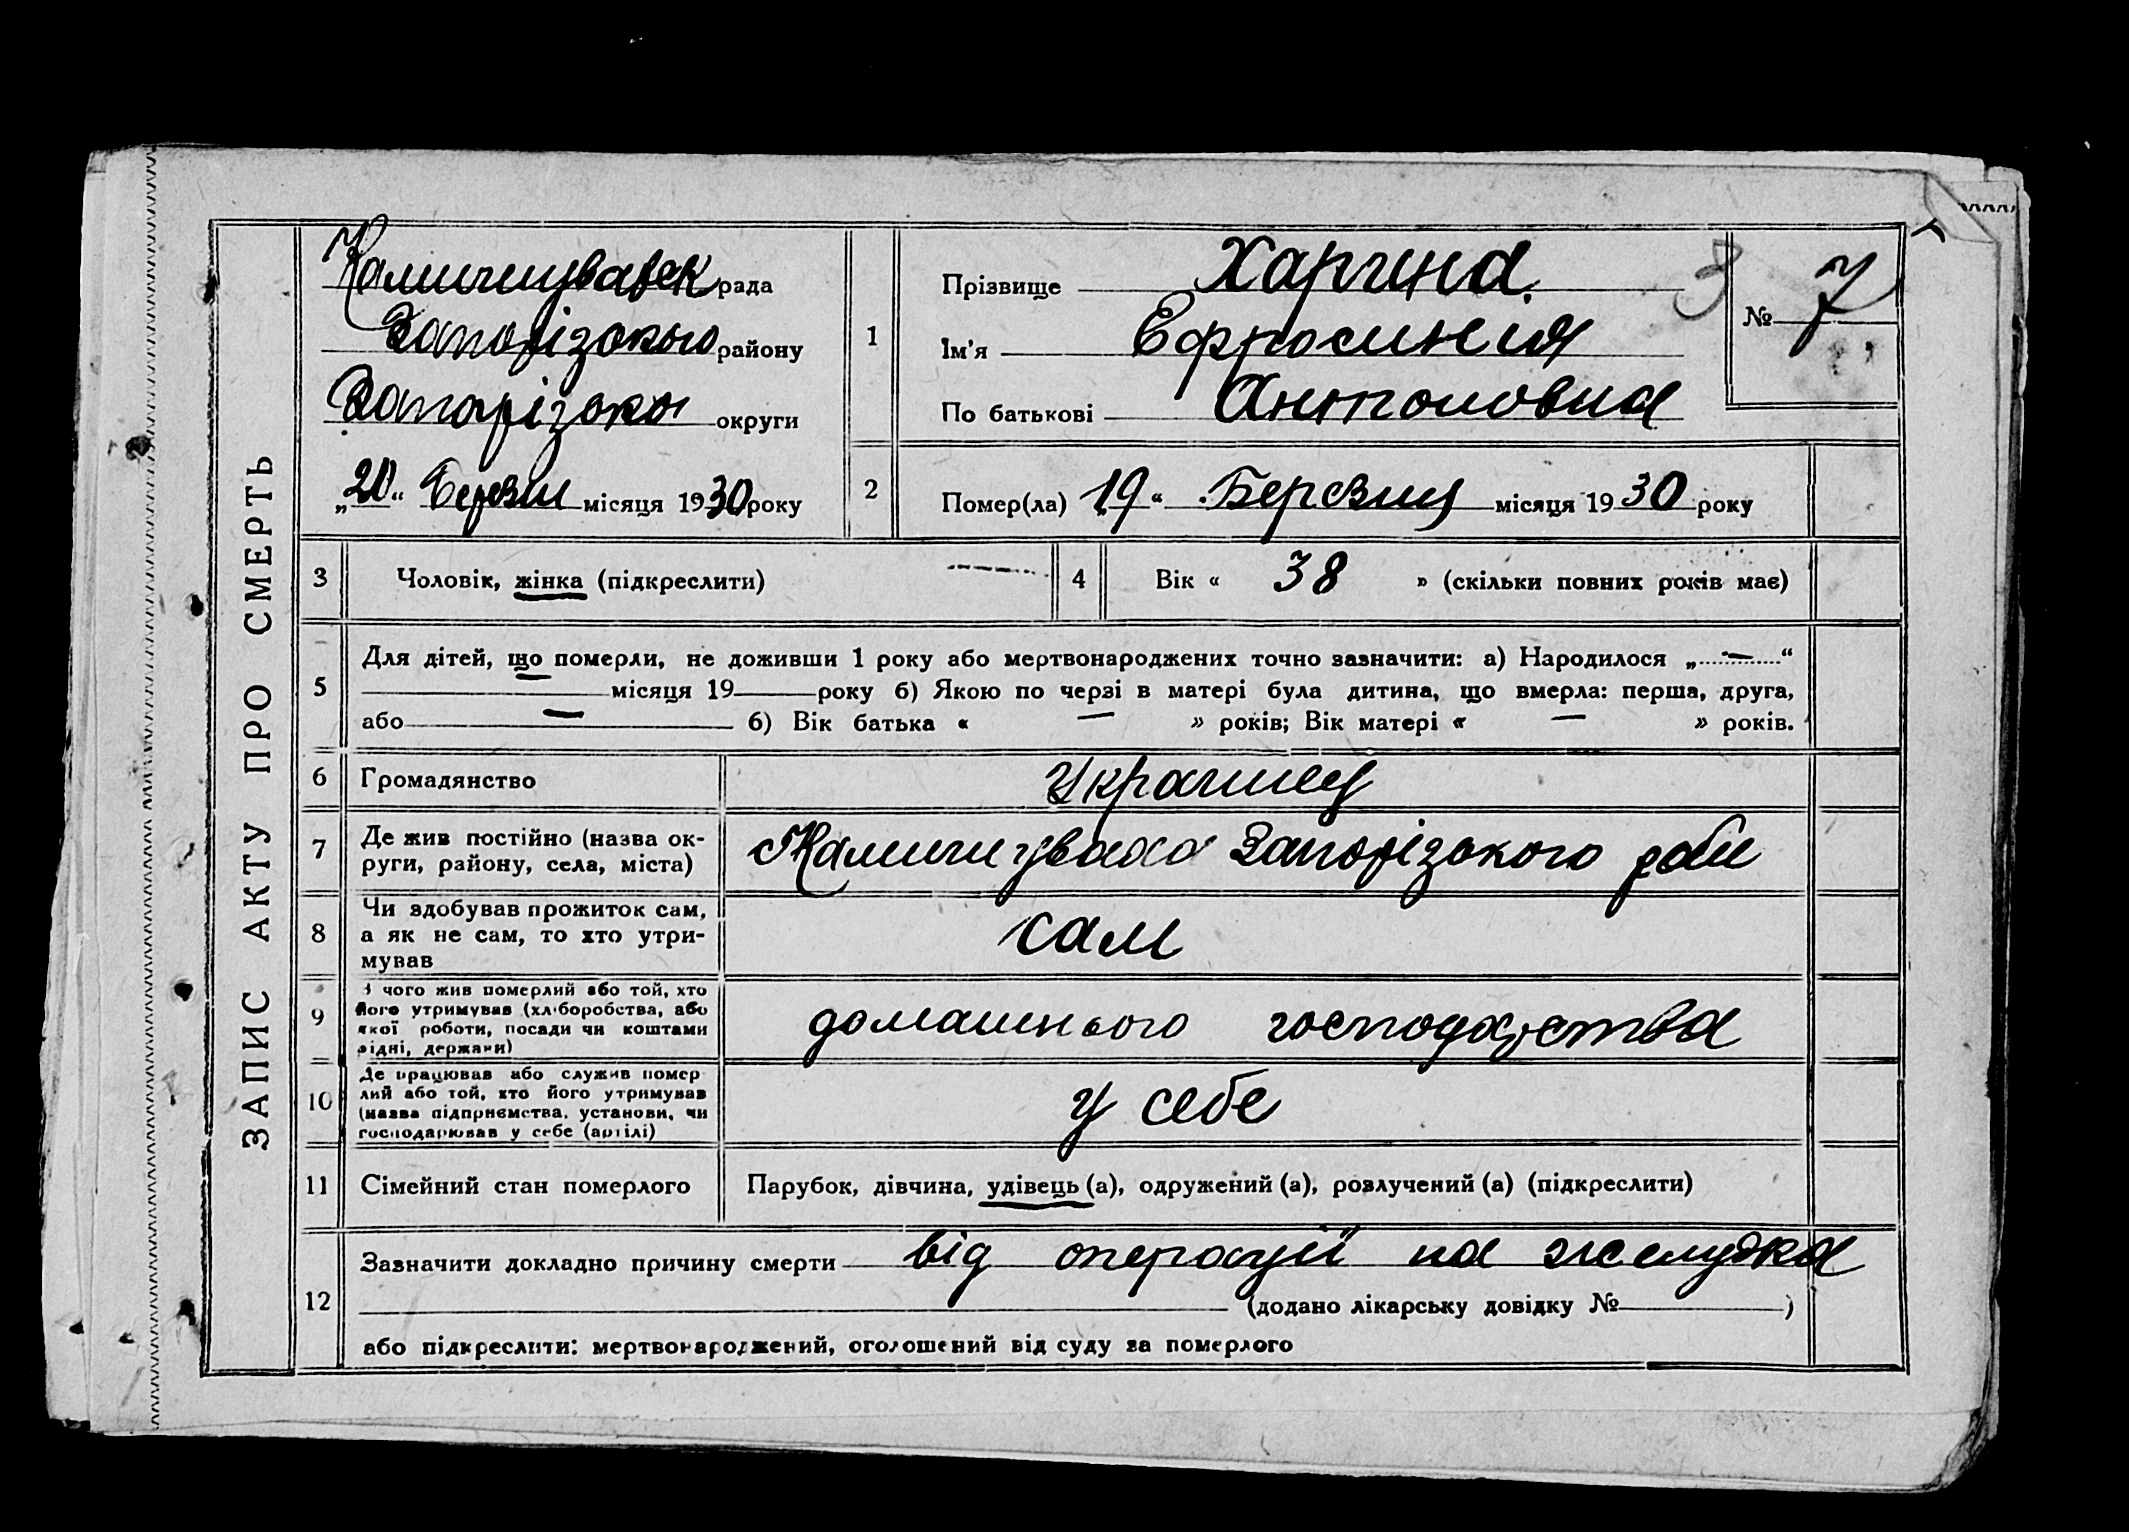 ЗАПИС АКТУ ПРО СМЕРТЬ
рада
Запорізького району
Запорізько округи
„20“ Березня місяця 1930 року
1
Прізвище Харчина
Ім'я Ефросинія
По батькові Антоновна
№ 7
3
2
Помер(ла) „19“ Березня місяця 1930 року
3
Чоловік, жінка (підкреслити)
4
Вік « 38 » (скільки повних років має)
5
Для дітей, що померли, не доживши 1 року або мертвонароджених точно зазначити: а) Народилося „—“
місяця 19 року б) Якою по черзі в матері була дитина, що вмерла: перша, друга,
або — б) Вік батька « — » років; Вік матері « — » років.
6
Громадянство
Українец
7
Де жив постійно (назва ок-
руги, району, села, міста)
Запорізького рай
8
Чи здобував прожиток сам,
а як не сам, то хто утри-
мував
сам
9
З чого жив померлий або той, хто
його утримував (хліборобства, або
якої роботи, посади чи коштами
рідні, держави)
домашнього господарства
10
Де працював або служив помер
лий або той, хто його утримував
(назва підприємства, установи, чи
господарював у себе (артілі)
у себе
11
Сімейний стан померлого
Парубок, дівчина, удівець (а), одружений (а), розлучений (а) (підкреслити)
12
Зазначити докладно причину смерти від операції на желудка
(додано лікарську довідку № )
або підкреслити: мертвонароджений, оголошений від суду за померлого